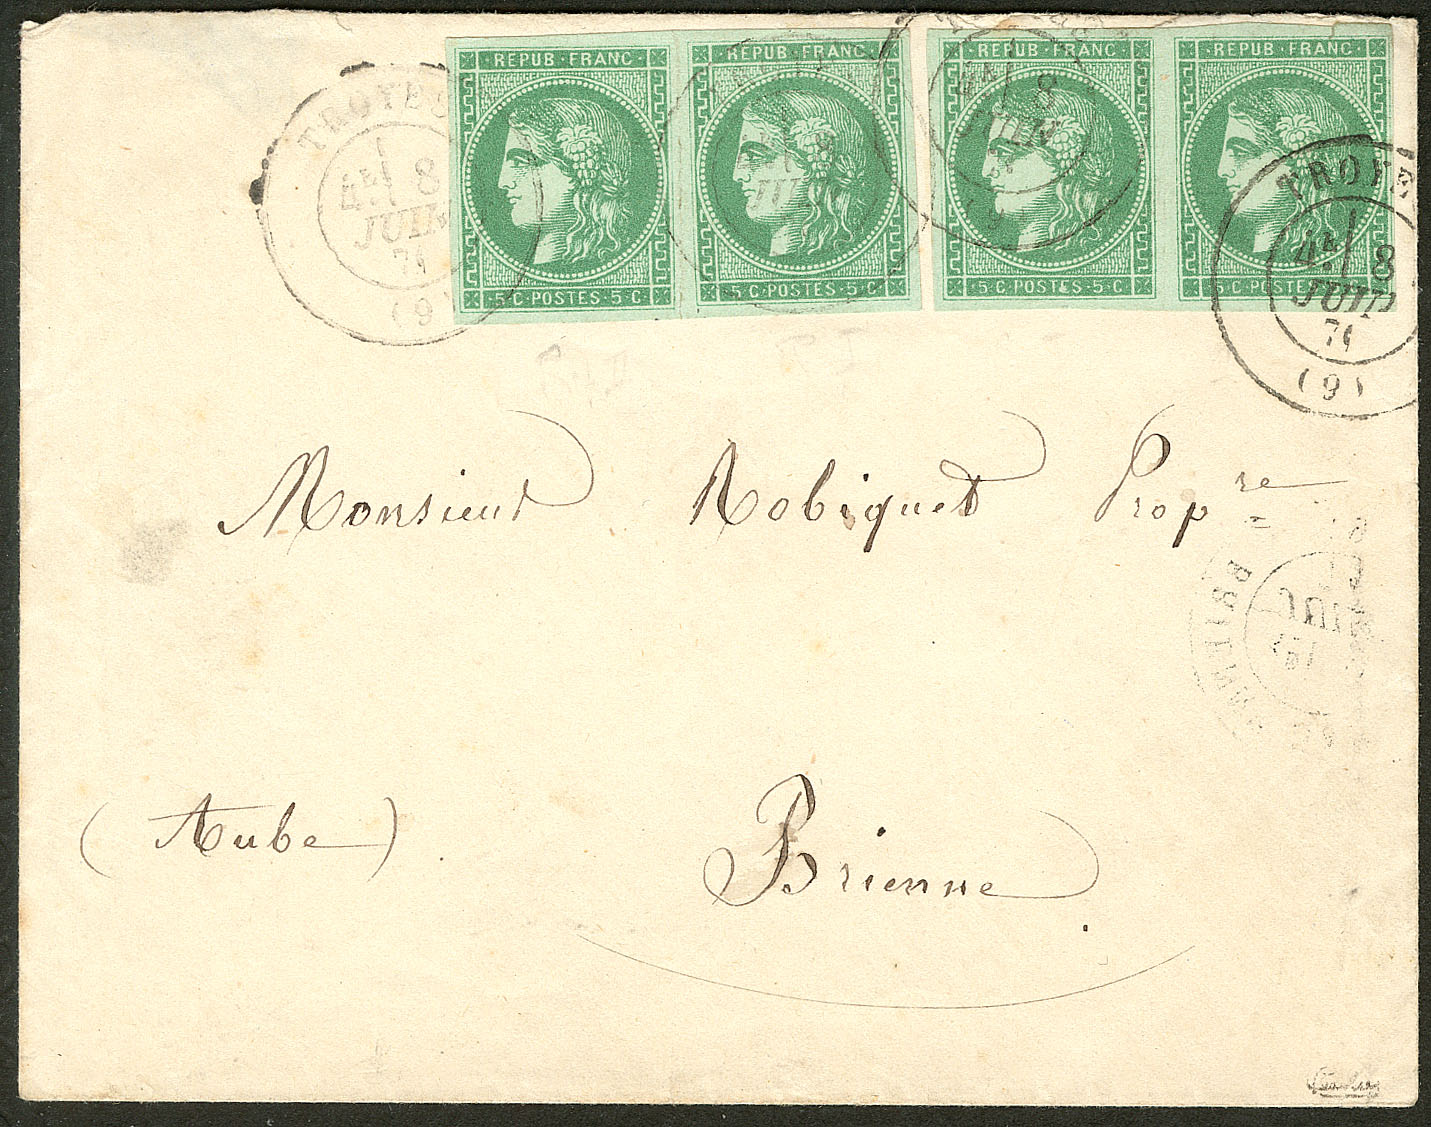 REPUB·FRANC REPUB·FRANC REPUB·FRANC REPUB·FRANC
5·C·POSTES·5·C 5·C·POSTES·5·C 5·C·POSTES·5·C 5·C·POSTES
TROYES
4E 8
JUIN
71
(9)
8
JUIN
4E 8
JUIN
(9)
TROYE
4E 8
JUIN
71
(9)
Monsieur Robiquet Propre
BRIENNE
(Aube) Brienne